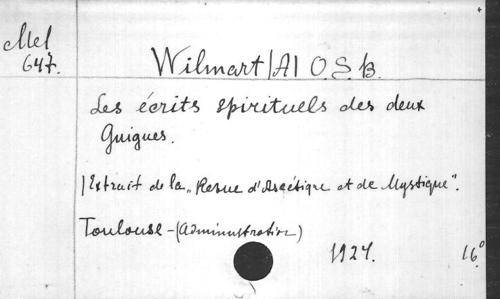 Mel
647.
Wilmart /A/ O.S.B.
Les écrits spirituels des deux
Guigues.
/Extrait de la „Revue d'Ascétique et de Mystique".
Toulouse - (Administration)
1924. 16°